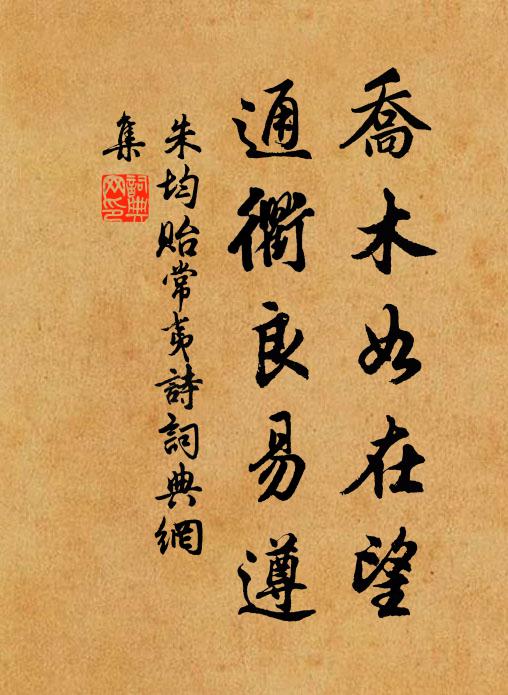 喬木如在望
通衢良易遵
朱均貽常夷詩詞典網
集
詞典
网印